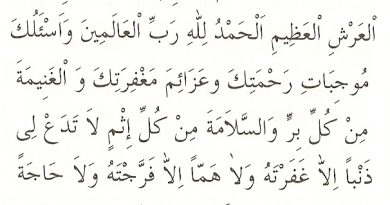 الْعَرْشِ الْعَظِيمِ اَلْحَمْدُ لِلّٰهِ رَبِّ الْعَالَمِينَ وَاَسْئَلُكَ
مُوجِبَاتِ رَحْمَتِكَ وَعَزَائِمَ مَغْفِرَتِكَ وَ الْغَنِيمَةَ
مِنْ كُلِّ بِرٍّ وَالسَّلَامَةَ مِنْ كُلِّ إِثْمٍ لَا تَدَعْ لِى
ذَنْباً اِلاَّ غَفَرْتَهُ وَلاَ هَمّاً اِلاَّ فَرَّجْتَهُ وَلاَ حَاجَةً